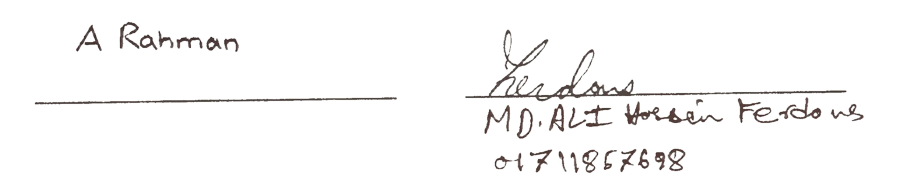 A Rahman
Ferdous
MD. ALI Hossein Ferdous
01711857698